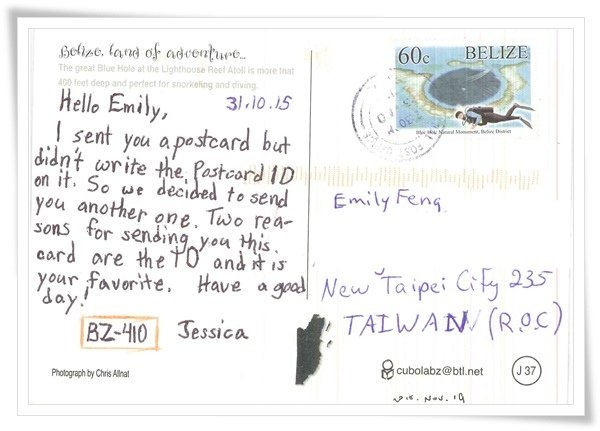 Belize, land of adventure...
The great Blue Hole at the Lighthouse Reef Atoll is more that
400 feet deep and perfect for snorkeling and diving.
Hello Emily,
31.10.15
I sent you a postcard but
didn't write the Postcard ID
on it. So we decided to send
you another one. Two rea-
sons for sending you this
card are the ID and it is
your favorite. Have a good
day!
BZ-410 Jessica
Photograph by Chris Allnat
60c BELIZE
Blue Hole Natural Monument, Belize District
Emily Feng
New Taipei City 235
TAIWAN (R.O.C)
cubolabz@btl.net
J 37
NOV. 19